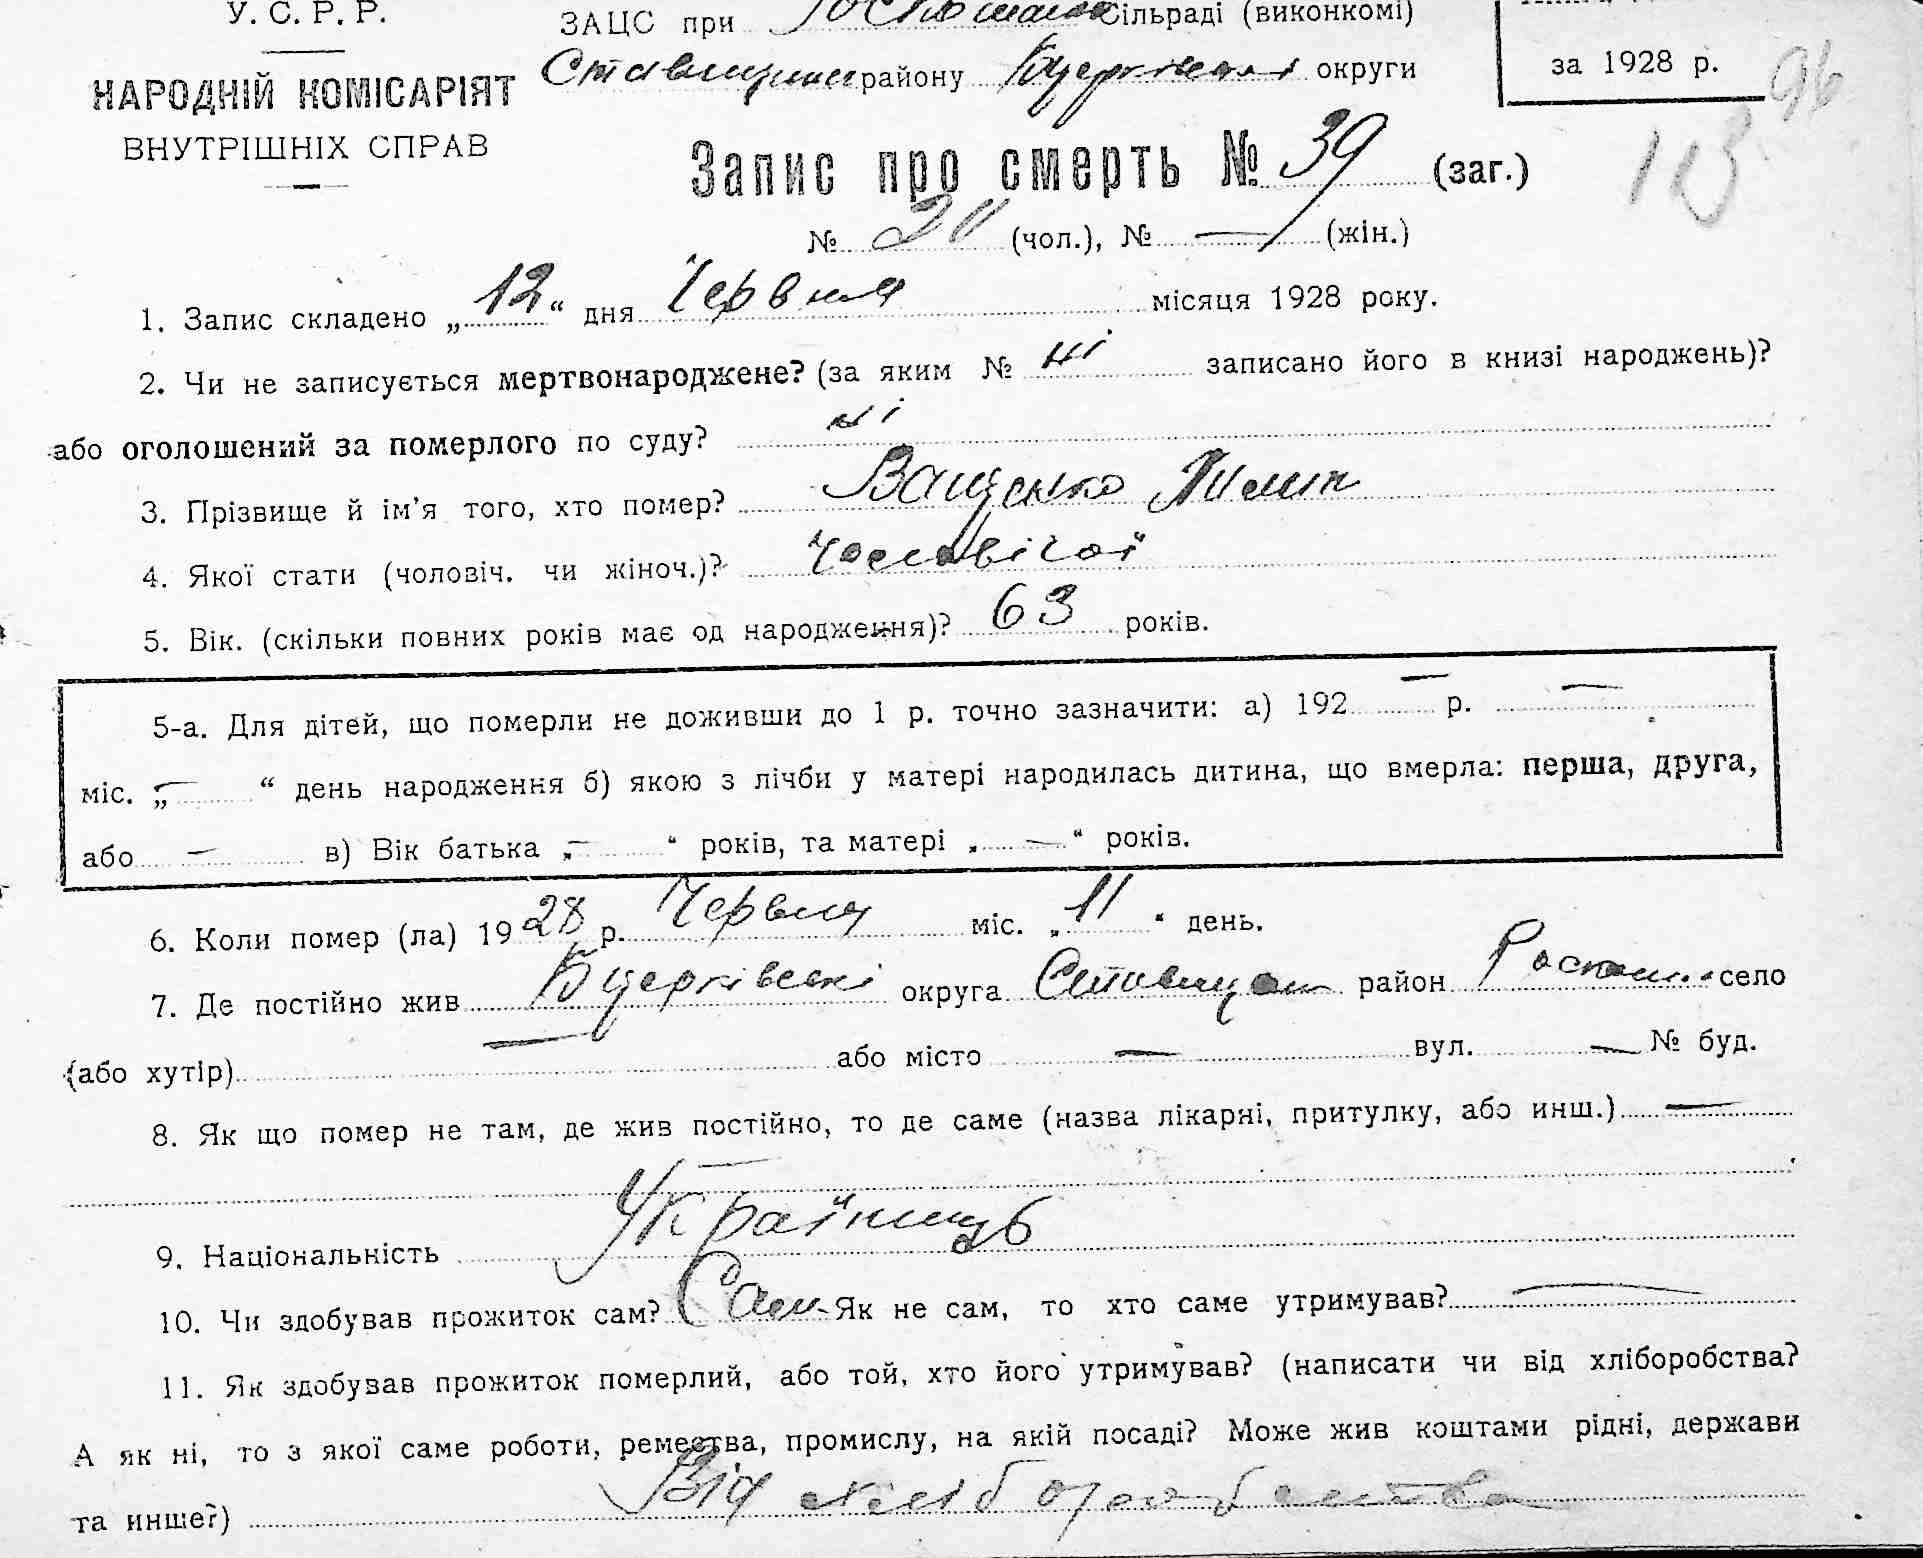 У. С. Р. Р.
ЗАЦС при Сільраді (виконкомі)
НАРОДНІЙ КОМІСАРІЯТ
району Бцерківської округи
за 1928 р.
96
ВНУТРІШНІХ СПРАВ
Запис про смерть № 39 (заг.)
113
№ 20 (чол.), № — (жін.)
1. Запис складено „12“ дня Червня місяця 1928 року.
2. Чи не записується мертвонароджене? (за яким № ні записано його в книзі народжень)?
або оголошений за померлого по суду? ні
3. Прізвище й ім'я того, хто помер? Ващенко Пилип
4. Якої стати (чоловіч. чи жіноч.)? Чоловічої
5. Вік. (скільки повних років має од народження)? 63 років.
5-а. Для дітей, що померли не доживши до 1 р. точно зазначити: а) 192 — р. —
міс. „—“ день народження б) якою з лічби у матері народилась дитина, що вмерла: перша, друга,
або — в) Вік батька „—“ років, та матері „—“ років.
6. Коли помер (ла) 1928 р. Червня міс. „11“ день.
7. Де постійно жив Бцерківські округа Ставищан район село
(або хутір) — або місто — вул. — № буд.
8. Як що помер не там, де жив постійно, то де саме (назва лікарні, притулку, або инш.) —
—
9. Національність Українець
10. Чи здобував прожиток сам? Сам Як не сам, то хто саме утримував? —
11. Як здобував прожиток померлий, або той, хто його утримував? (написати чи від хліборобства?
А як ні, то з якої саме роботи, ремества, промислу, на якій посаді? Може жив коштами рідні, держави
та инше?) Від хліборобства